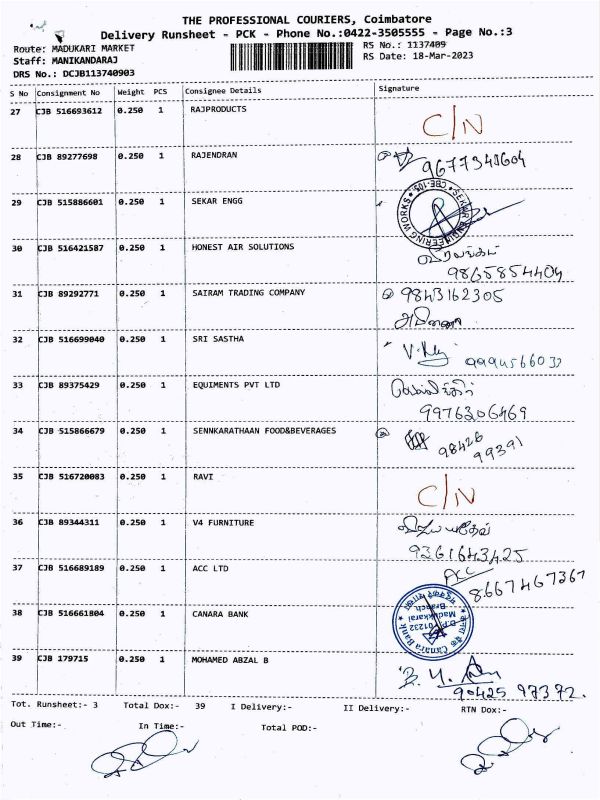 THE PROFESSIONAL COURIERS, Coimbatore
Delivery Runsheet - PCK - Phone No.:0422-3505555 - Page No.:3
Route: MADUKARI MARKET
RS No.: 1137409
Staff: MANIKANDARAJ
RS Date: 18-Mar-2023
DRS No.: DCJB113740903
S No Consignment No Weight PCS Consignee Details Signature
27 CJB 516693612 0.250 1 RAJPRODUCTS C/N
28 CJB 89277698 0.250 1 RAJENDRAN 9677348604
29 CJB 515886601 0.250 1 SEKAR ENGG SEKAR ENGINEERING WORKS * CBE-105 *
30 CJB 516421587 0.250 1 HONEST AIR SOLUTIONS
9865854404
31 CJB 89292771 0.250 1 SAIRAM TRADING COMPANY 9843162305
32 CJB 516699040 0.250 1 SRI SASTHA
33 CJB 89375429 0.250 1 EQUIMENTS PVT LTD
9976206469
34 CJB 515866679 0.250 1 SENNKARATHAAN FOOD&BEVERAGES 98426
99391
35 CJB 516720083 0.250 1 RAVI C/N
36 CJB 89344311 0.250 1 V4 FURNITURE
9361643425
37 CJB 516689189 0.250 1 ACC LTD ACC
8667467367
38 CJB 516661804 0.250 1 CANARA BANK Canara Bank
Madukkarai
Branch
39 CJB 179715 0.250 1 MOHAMED ABZAL B
90425 97372.
Tot. Runsheet:- 3 Total Dox:- 39 I Delivery:- II Delivery:- RTN Dox:-
Out Time:- In Time:- Total POD:-